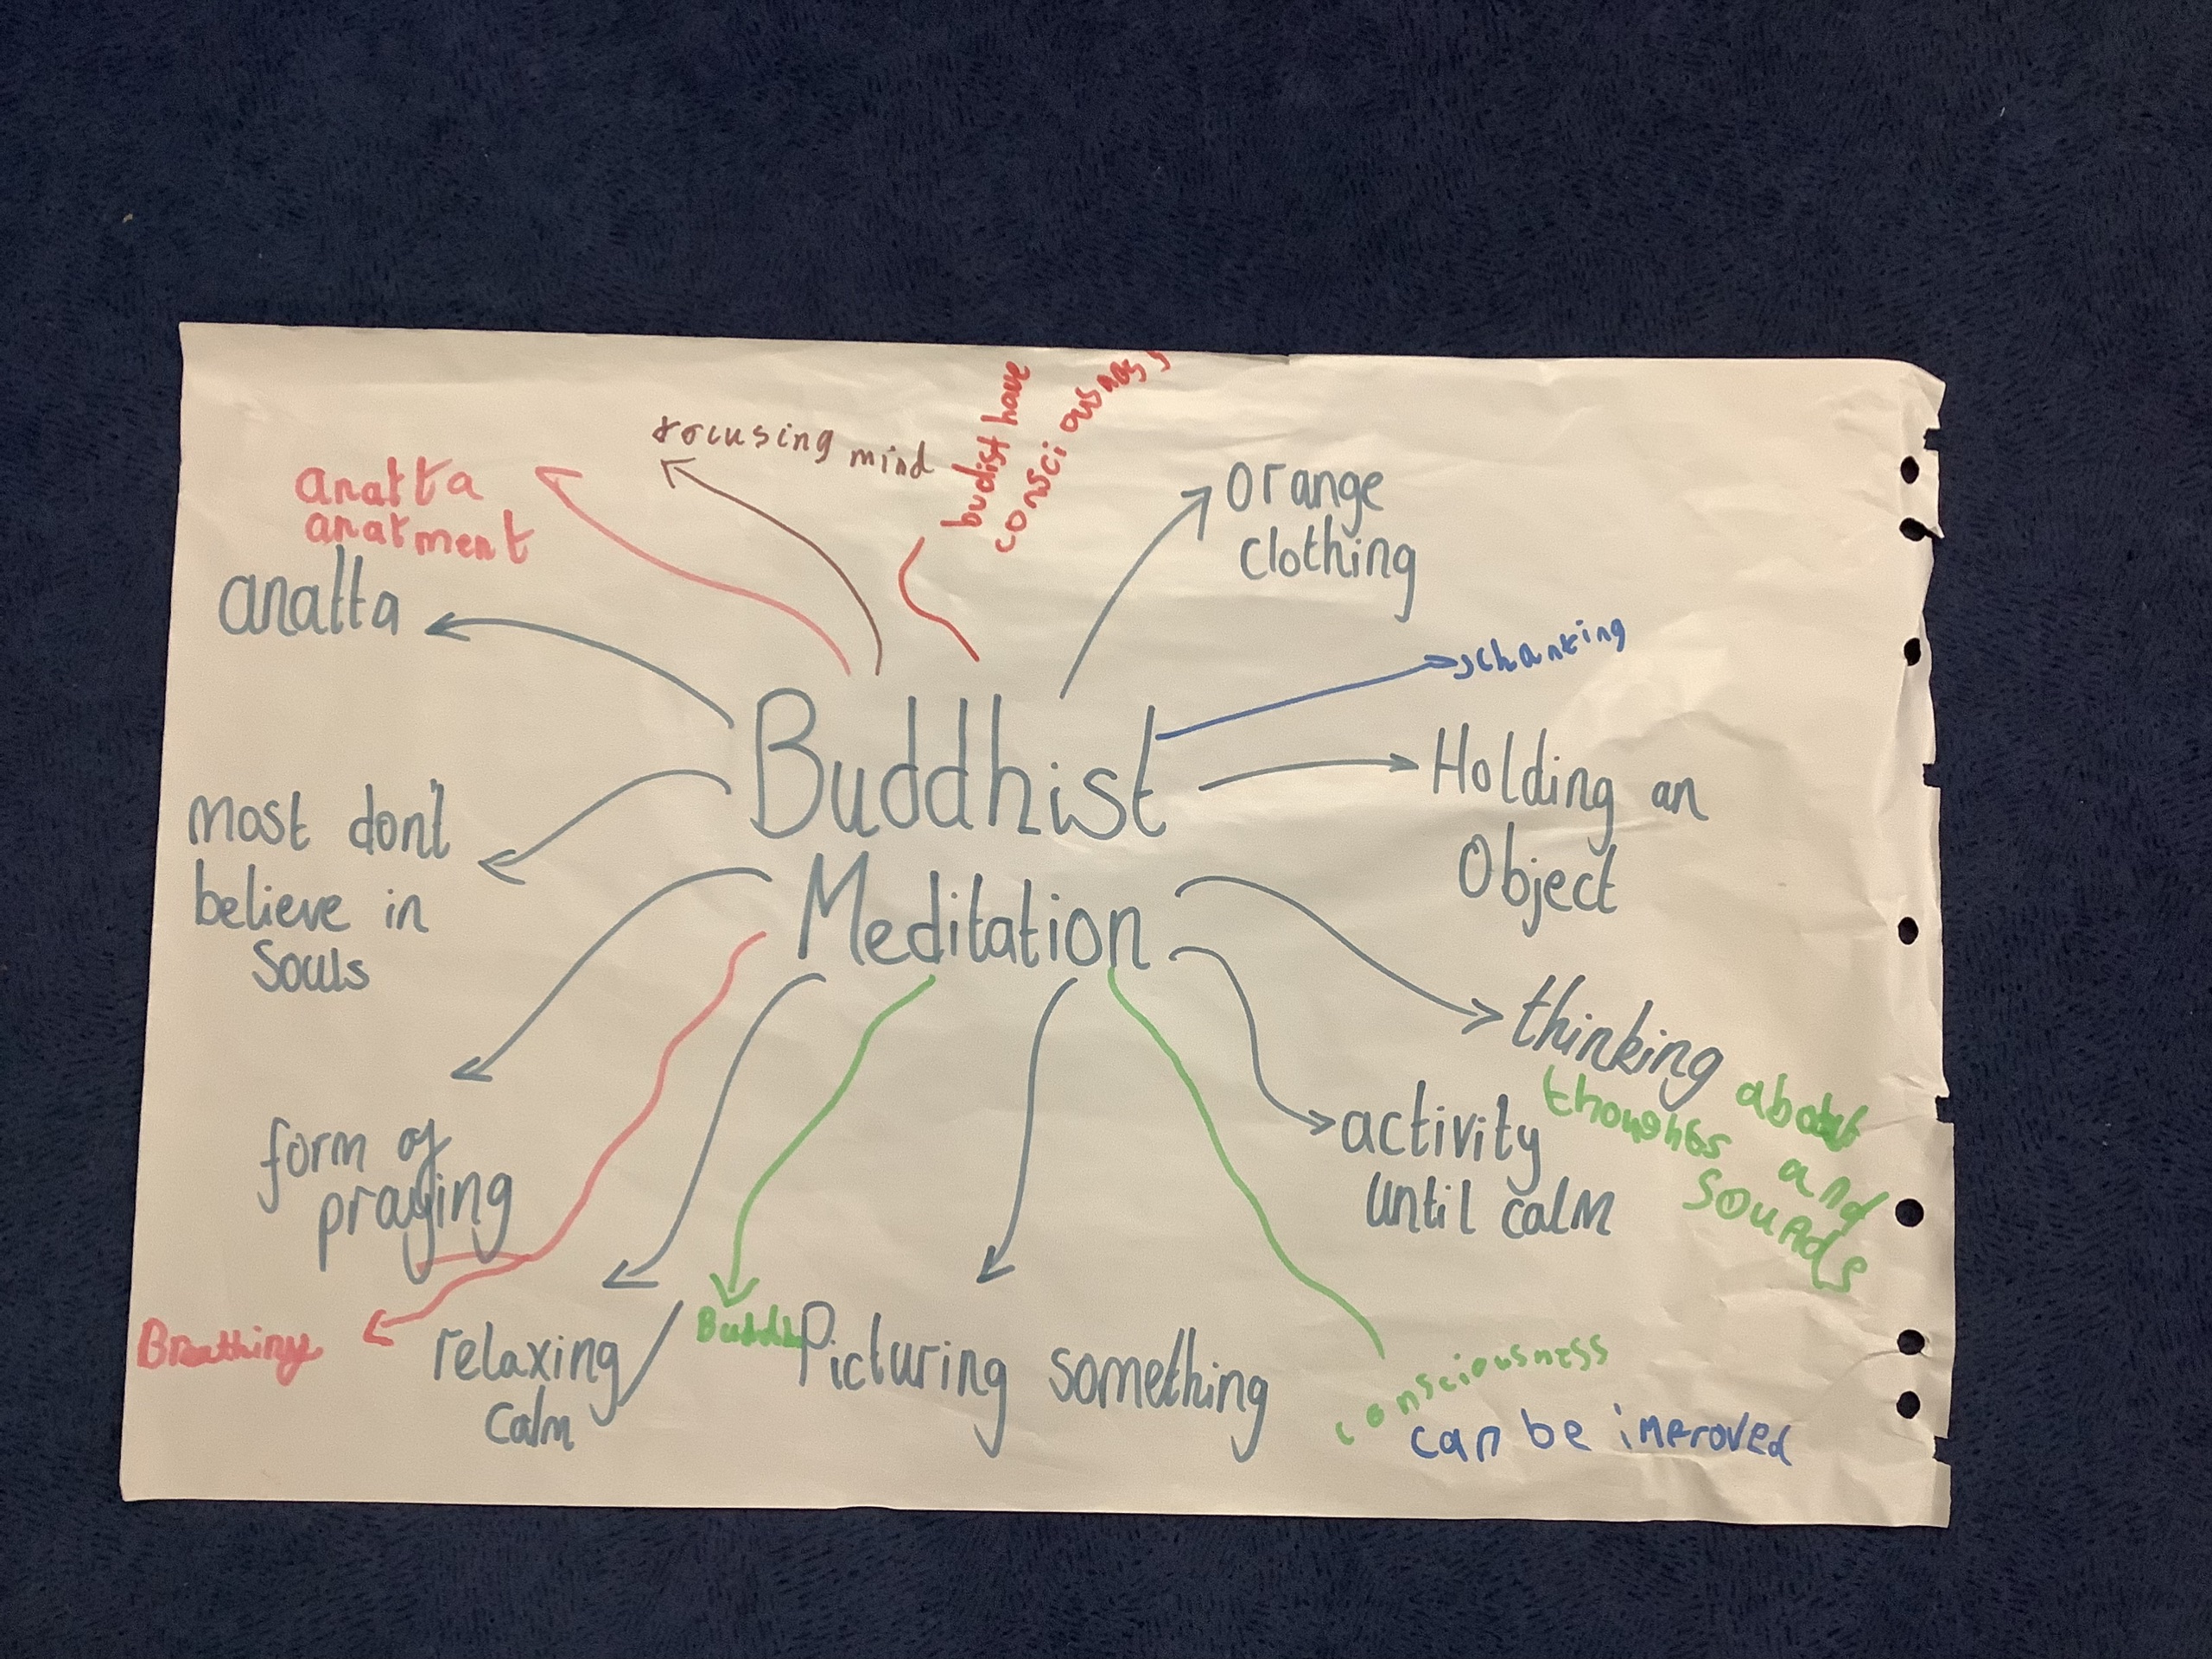 focusing mind
budist have
consciousness
anatta
anatment
orange
clothing
anatta
schanting
Buddhist
Meditation
Holding an
Object
most don't
believe in
Souls
thinking about
thoughts and
sounds
activity
until calm
form of
praying
Breathing
relaxing
calm
Buddha
Picturing something
consciousness
can be improved